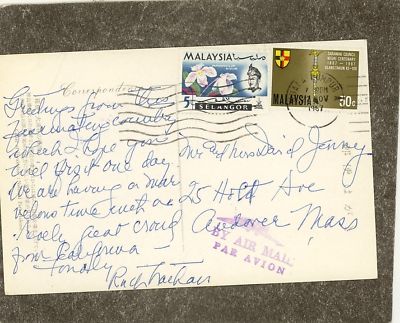 MALAYSIA
5c
SELANGOR
SARAWAK COUNCIL
NEGRI CENTENARY
1867 - 1967
MALAYSIA 50c
NOV
1967
Correspondence
Greetings from this
fascinating country
which I hope you
will visit one day
We are having a mar
velous time with a
lovely great crowd
from California
Fondly
Mr and Mrs David Jenney
25 Holt Ave
Andover Mass
BY AIR MAIL
PAR AVION